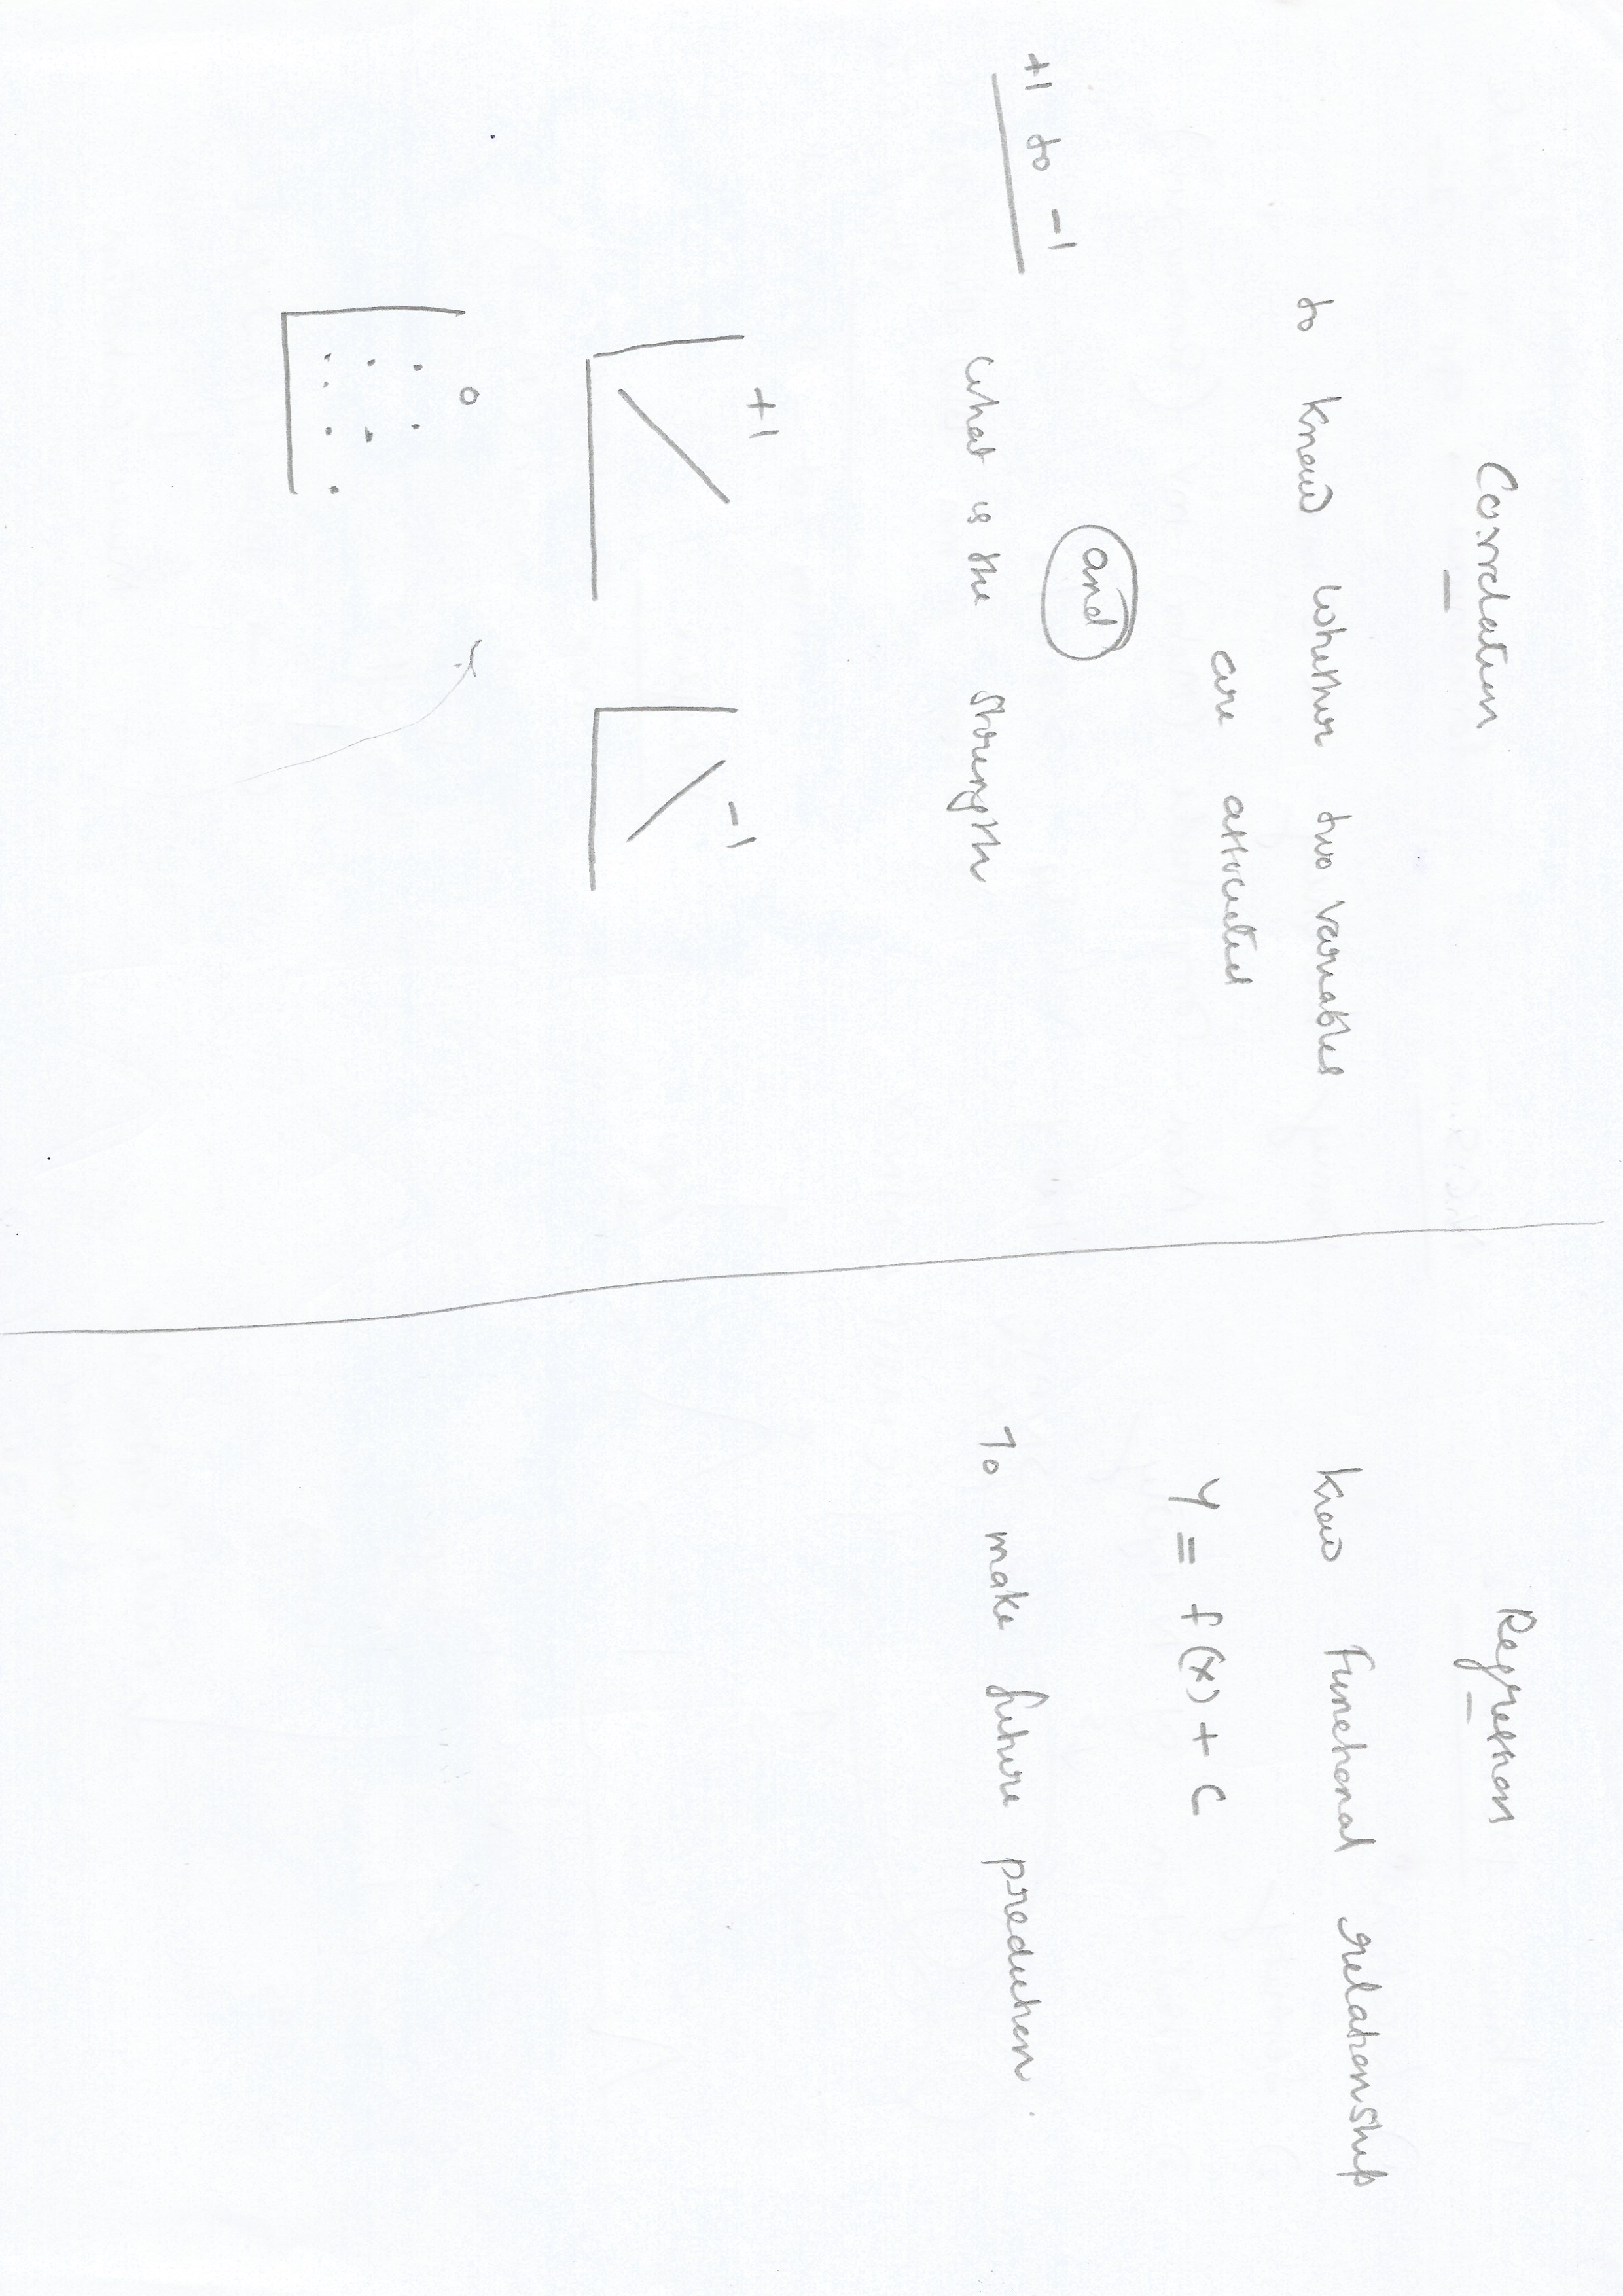 Correlation
to know whether two variables
are associated
and
+1 to -1
what is the strength
+1
-1
0
Regression
know Functional relationship
Y = f(x) + C
To make future prediction.